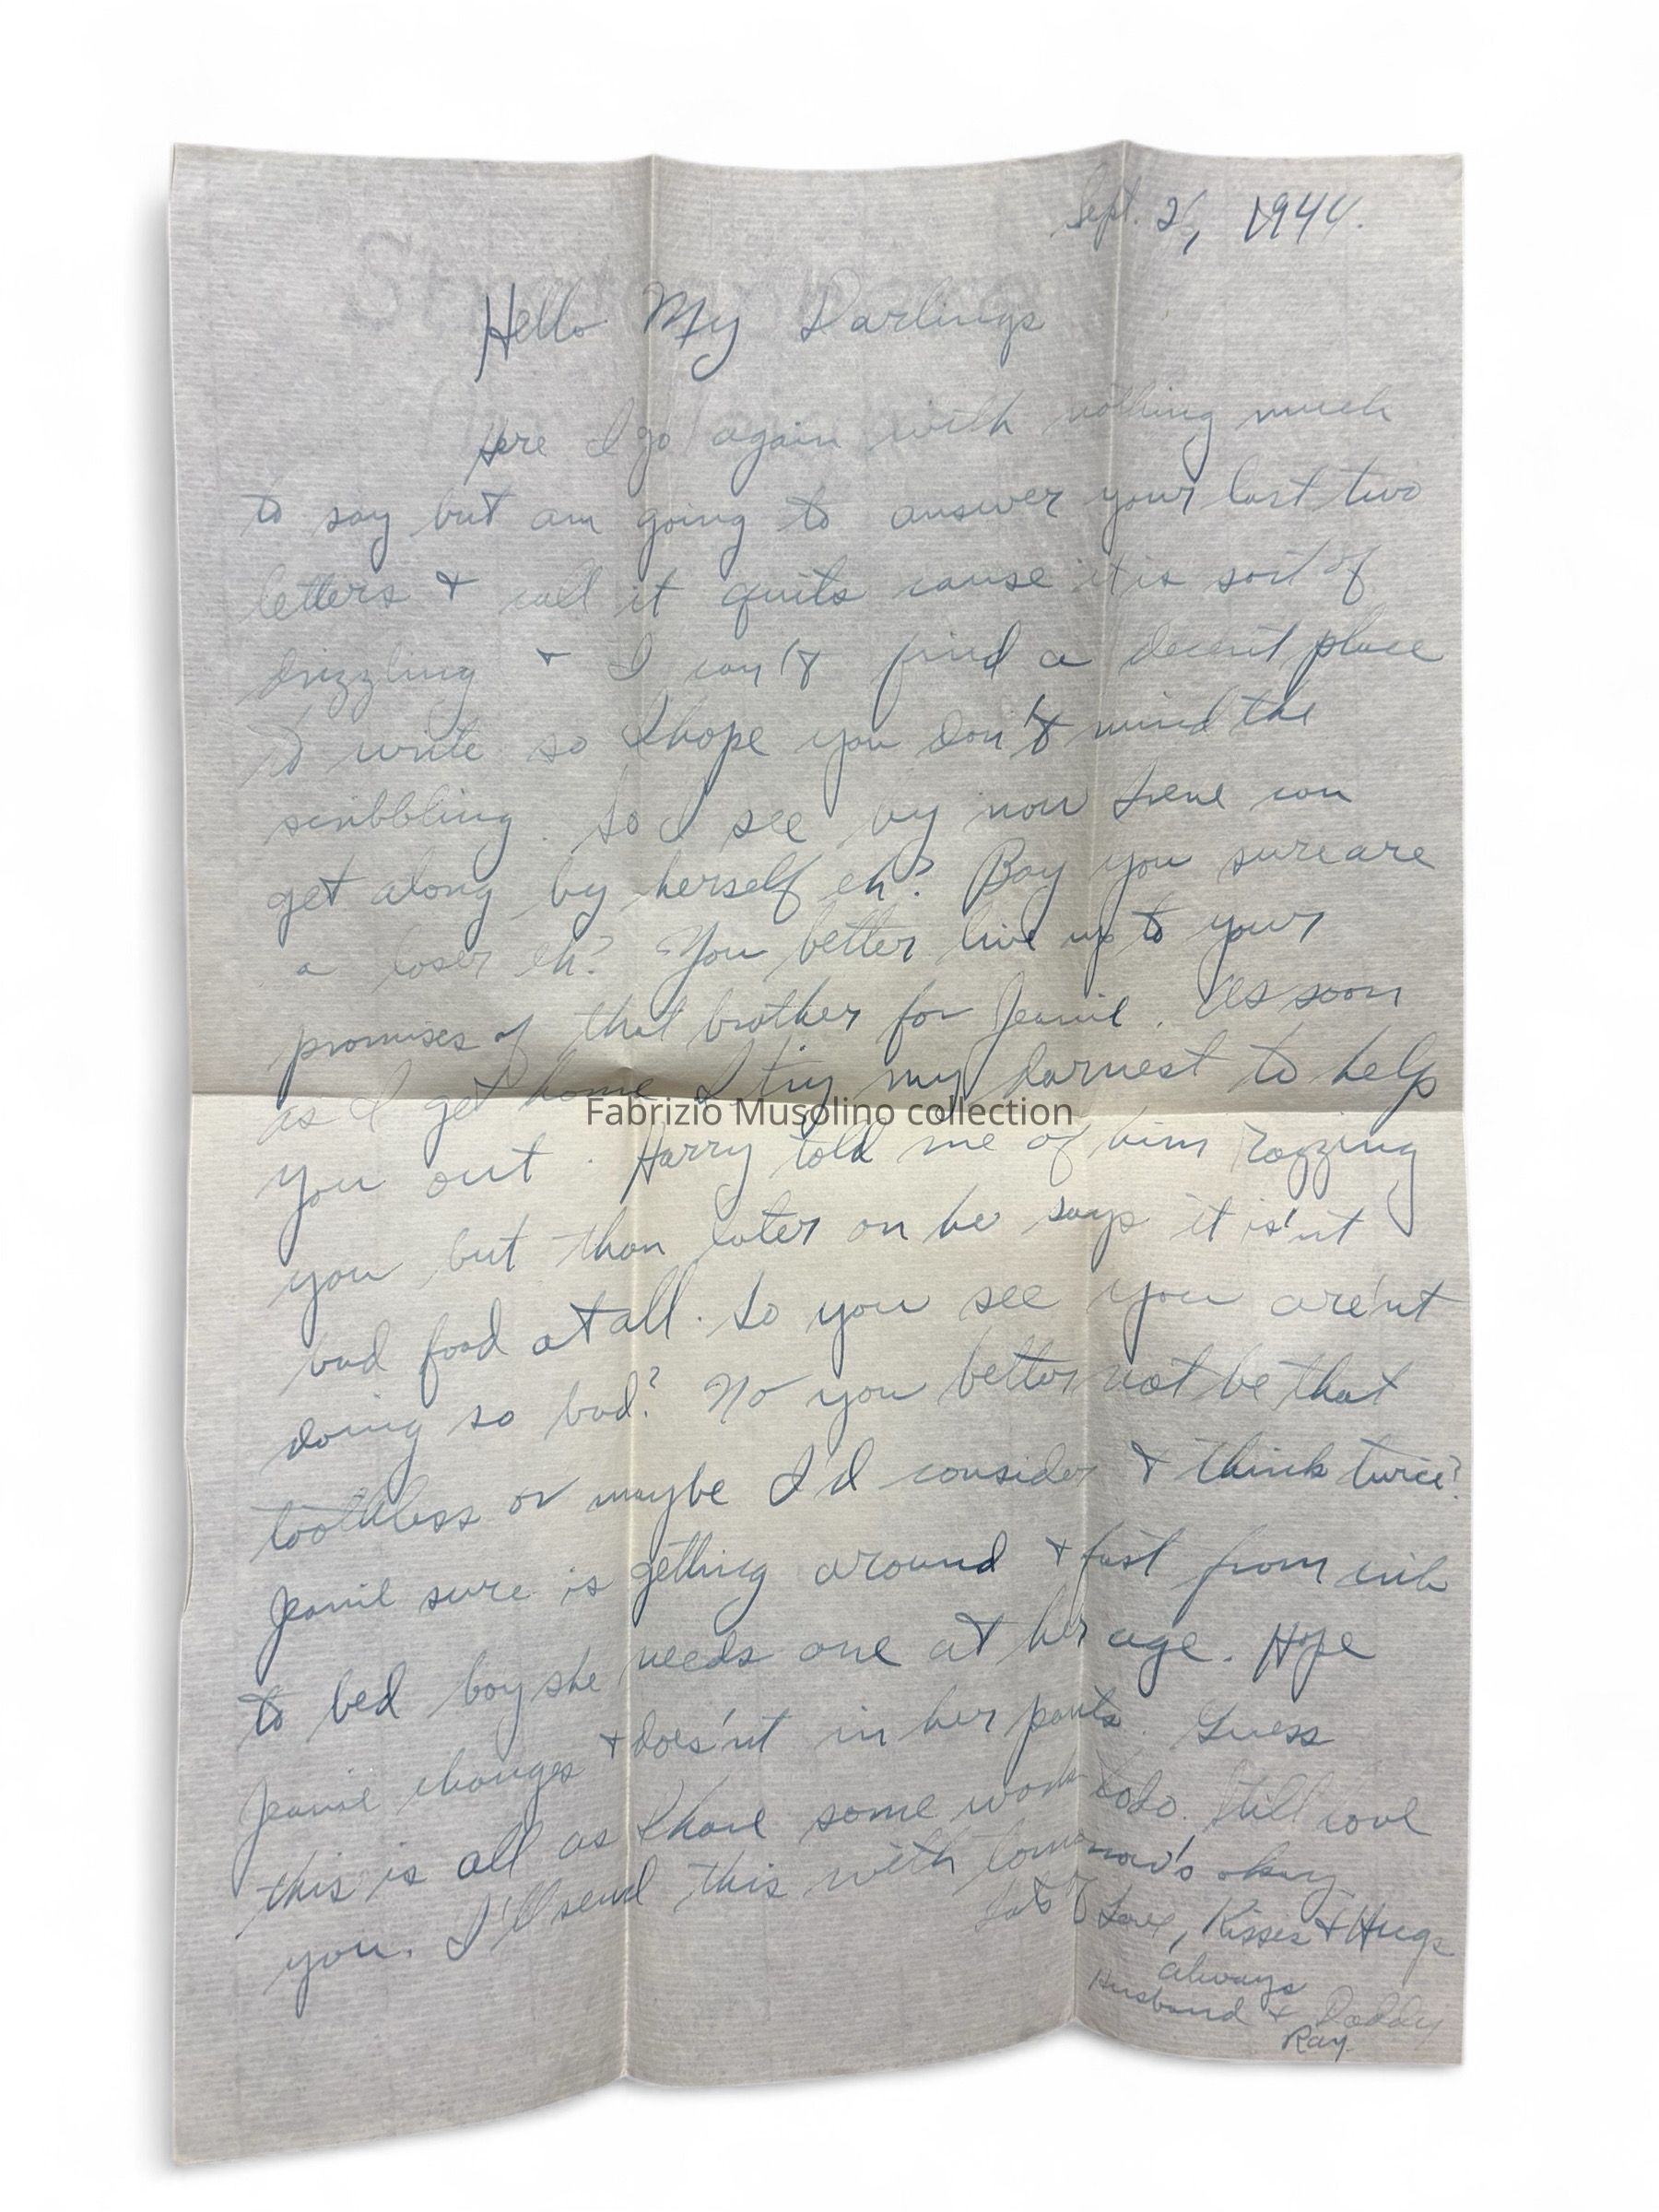 Sept. 26, 1944.
Hello My Darlings
Here I go again with nothing much
to say but am going to answer your last two
letters & call it quits cause it is sort of
drizzling & I can't find a decent place
to write so I hope you don't mind the
scribbling. So I see by now Irene can
get along by herself eh? Boy you sure are
a loser eh? You better live up to your
promises of that brother for Jeanie. As soon
as I get home I try my darnest to help
you out. Harry told me of him razzing
you but than later on he says it is'nt
bad food at all. So you see you are'nt
doing so bad? No you better not be that
toothless or maybe I'd consider & think twice?
Jeanie sure is getting around & fast from crib
to bed boy she needs one at her age. Hope
Jeanie changes & does'nt in her pants. Guess
this is all as I have some work to do. Still love
you. I'll send this with tomorrow's okay
Lots of Love, Kisses & Hugs
always
Husband & Daddy
Ray.
Fabrizio Musolino collection